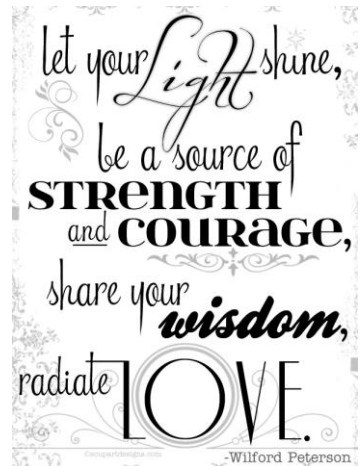 let your Light shine,
be a source of
STRENGTH
and COURAGE,
share your
wisdom,
radiate LOVE.
-Wilford Peterson